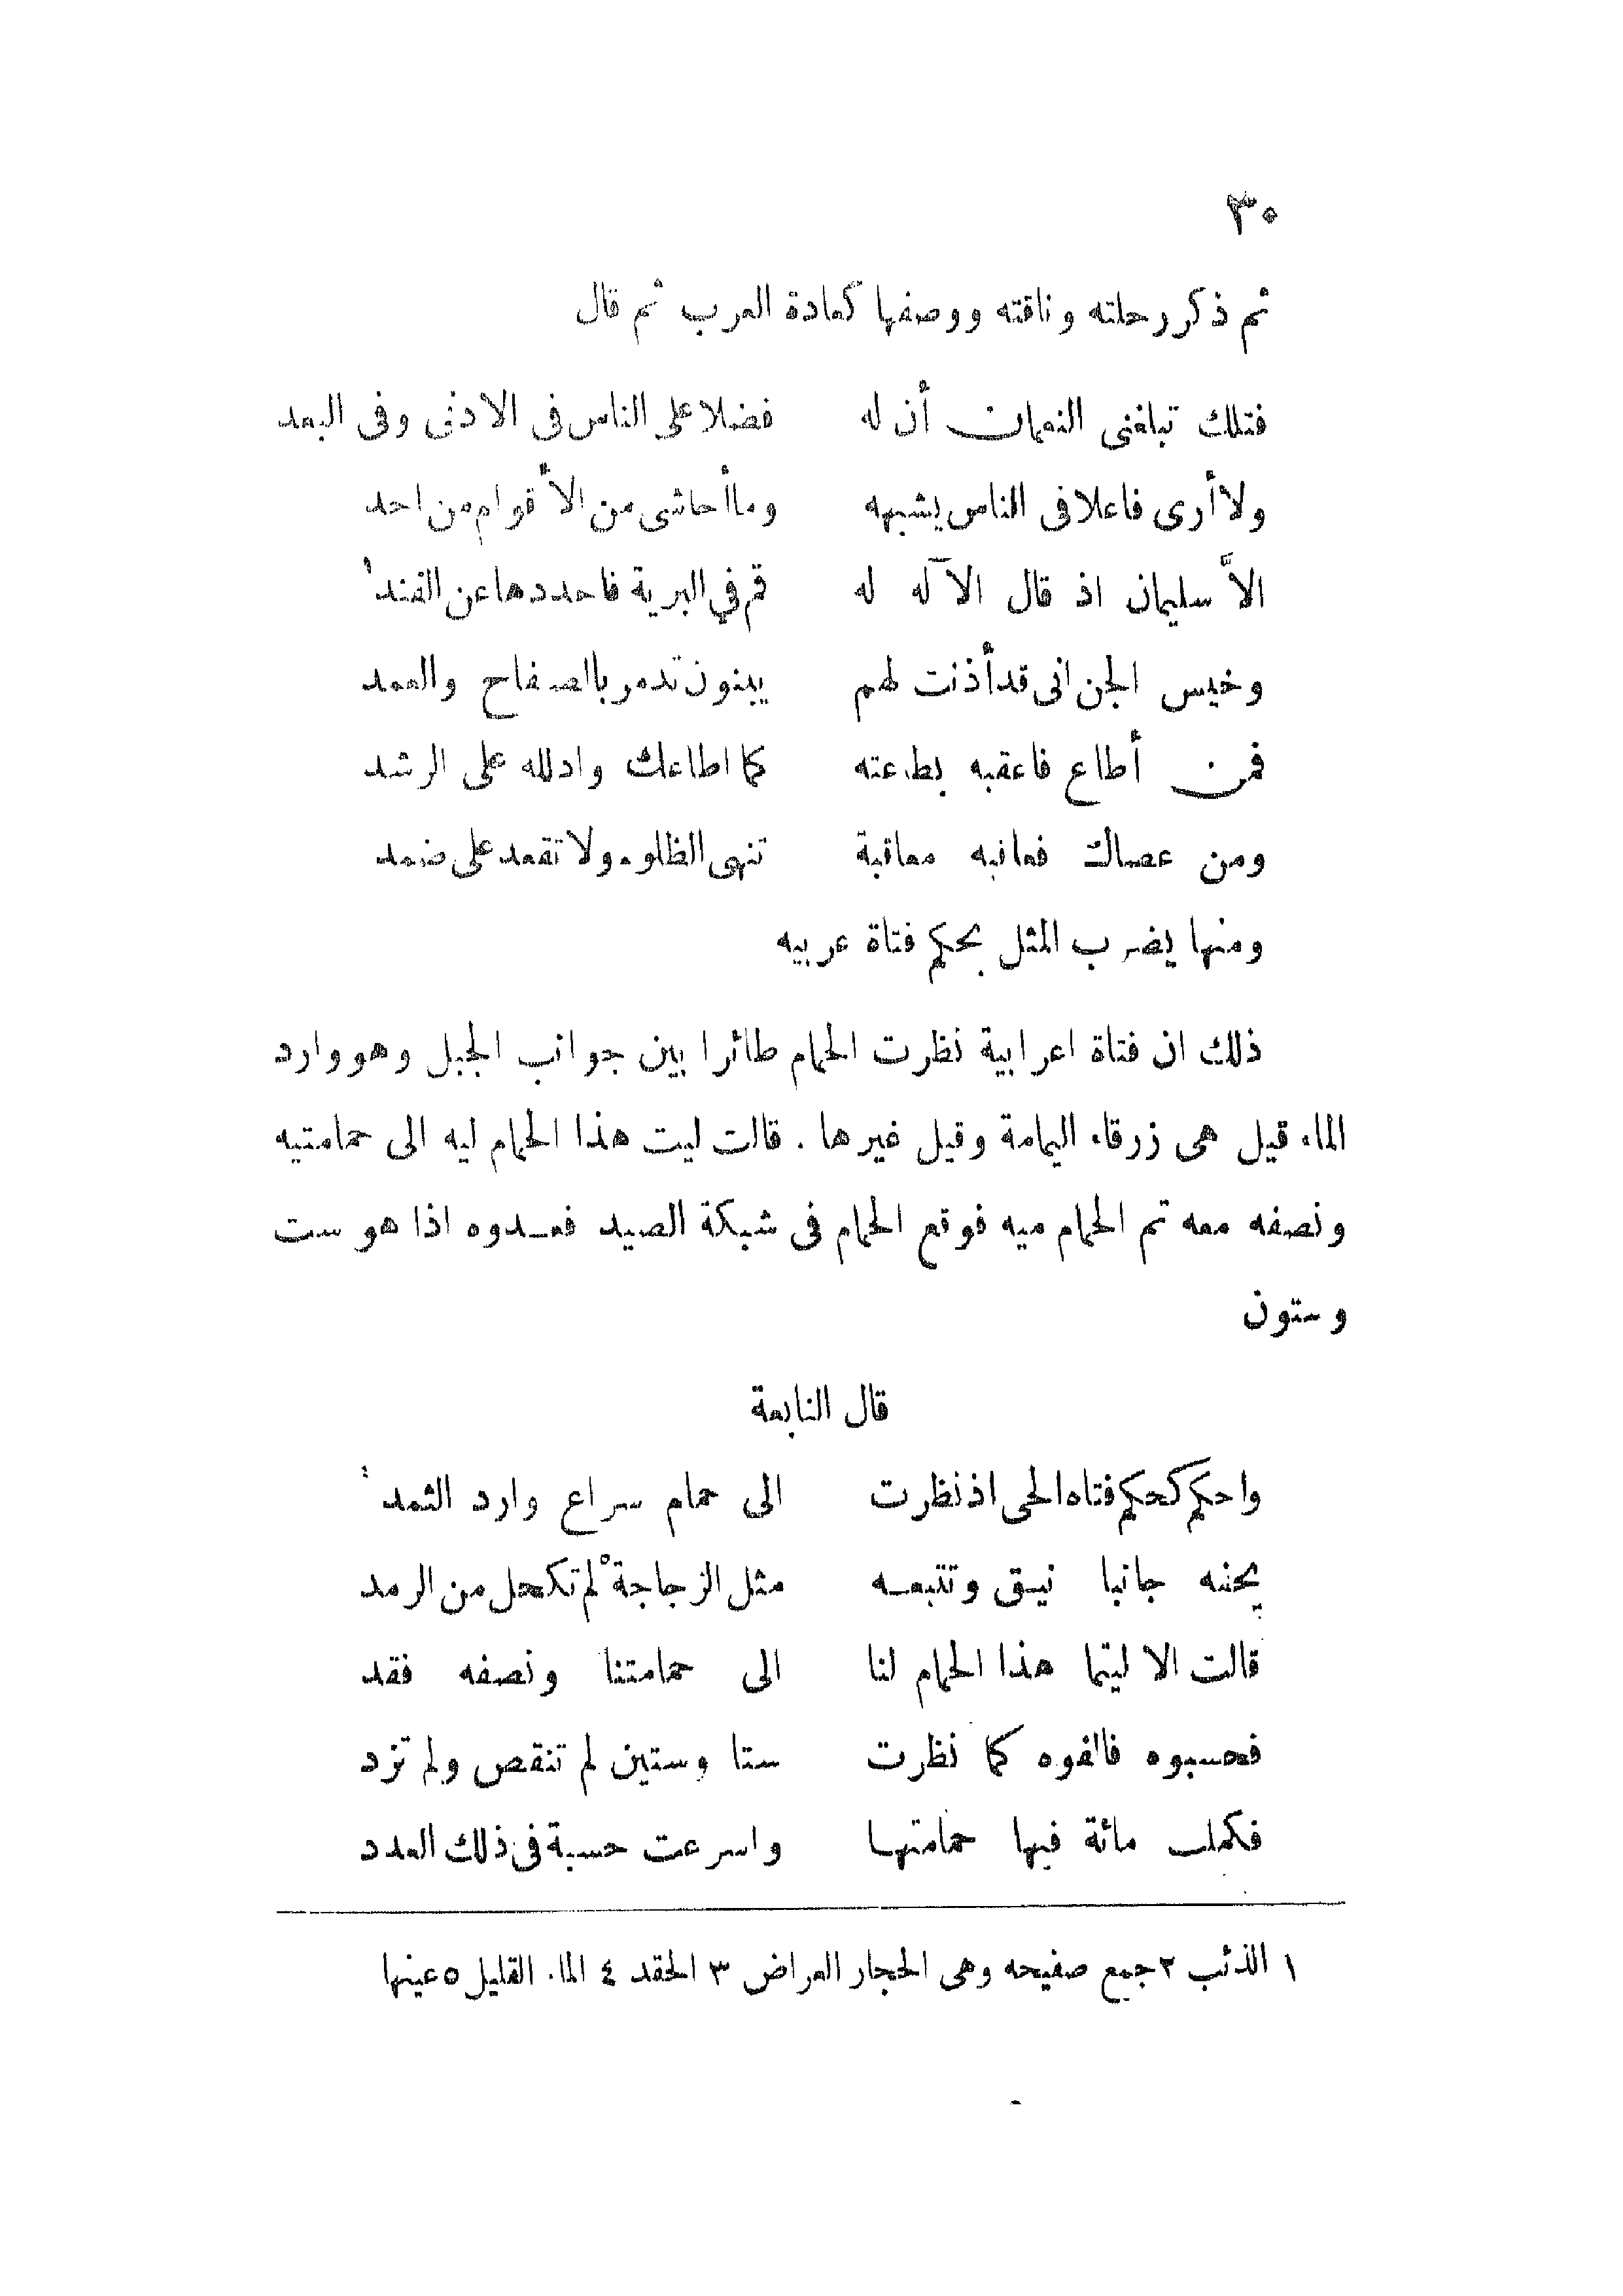 ٣٠
ثم ذكر رحلته وناقته ووصفها كعادة العرب ثم قال
فتلك تبلغنى النعمان أن له فضلا على الناس فى الادنى وفى البعد
ولا أرى فاعلا فى الناس يشبهه وما أحاشى من الأقوام من احد
الاَّ سليمان اذ قال الآله له قم في البرية فاحددها عن الفند١
وخيس الجن انى قد أذنت لهم يبنون تدمر بالصفاح والعمد
فمن أطاع فاعقبه بطاعته كما اطاعك وادلله على الرشد
ومن عصاك فعاقبه معاقبة تنهى الظلوم ولا تقعد على ضمد
ومنها يضرب المثل بحكم فتاة عربيه
ذلك ان فتاة اعرابية نظرت الحمام طائرا بين جوانب الجبل وهو وارد
الماء قيل هى زرقاء اليمامة وقيل غيرها . قالت ليت هذا الحمام ليه الى حمامتيه
ونصفه معه تم الحمام ميه فوقع الحمام فى شبكة الصيد فعدوه اذا هو ست
وستون
قال النابغة
واحكم كحكم فتاه الحى اذ نظرت الى حمام سراع وارد الثمد٤
يحفه جانبا نيق وتتبعه مثل الزجاجة٥ لم تكحل من الرمد
قالت الا ليتما هذا الحمام لنا الى حمامتنا ونصفه فقد
فحسبوه فالفوه كما نظرت ستا وستين لم تنقص ولم تزد
فكملت مائة فيها حمامتها واسرعت حسبة فى ذلك العدد
١ الذئب ٢ جمع صفيحه وهى الحجار العراض ٣ الحقد ٤ الماء القليل ٥ عينها